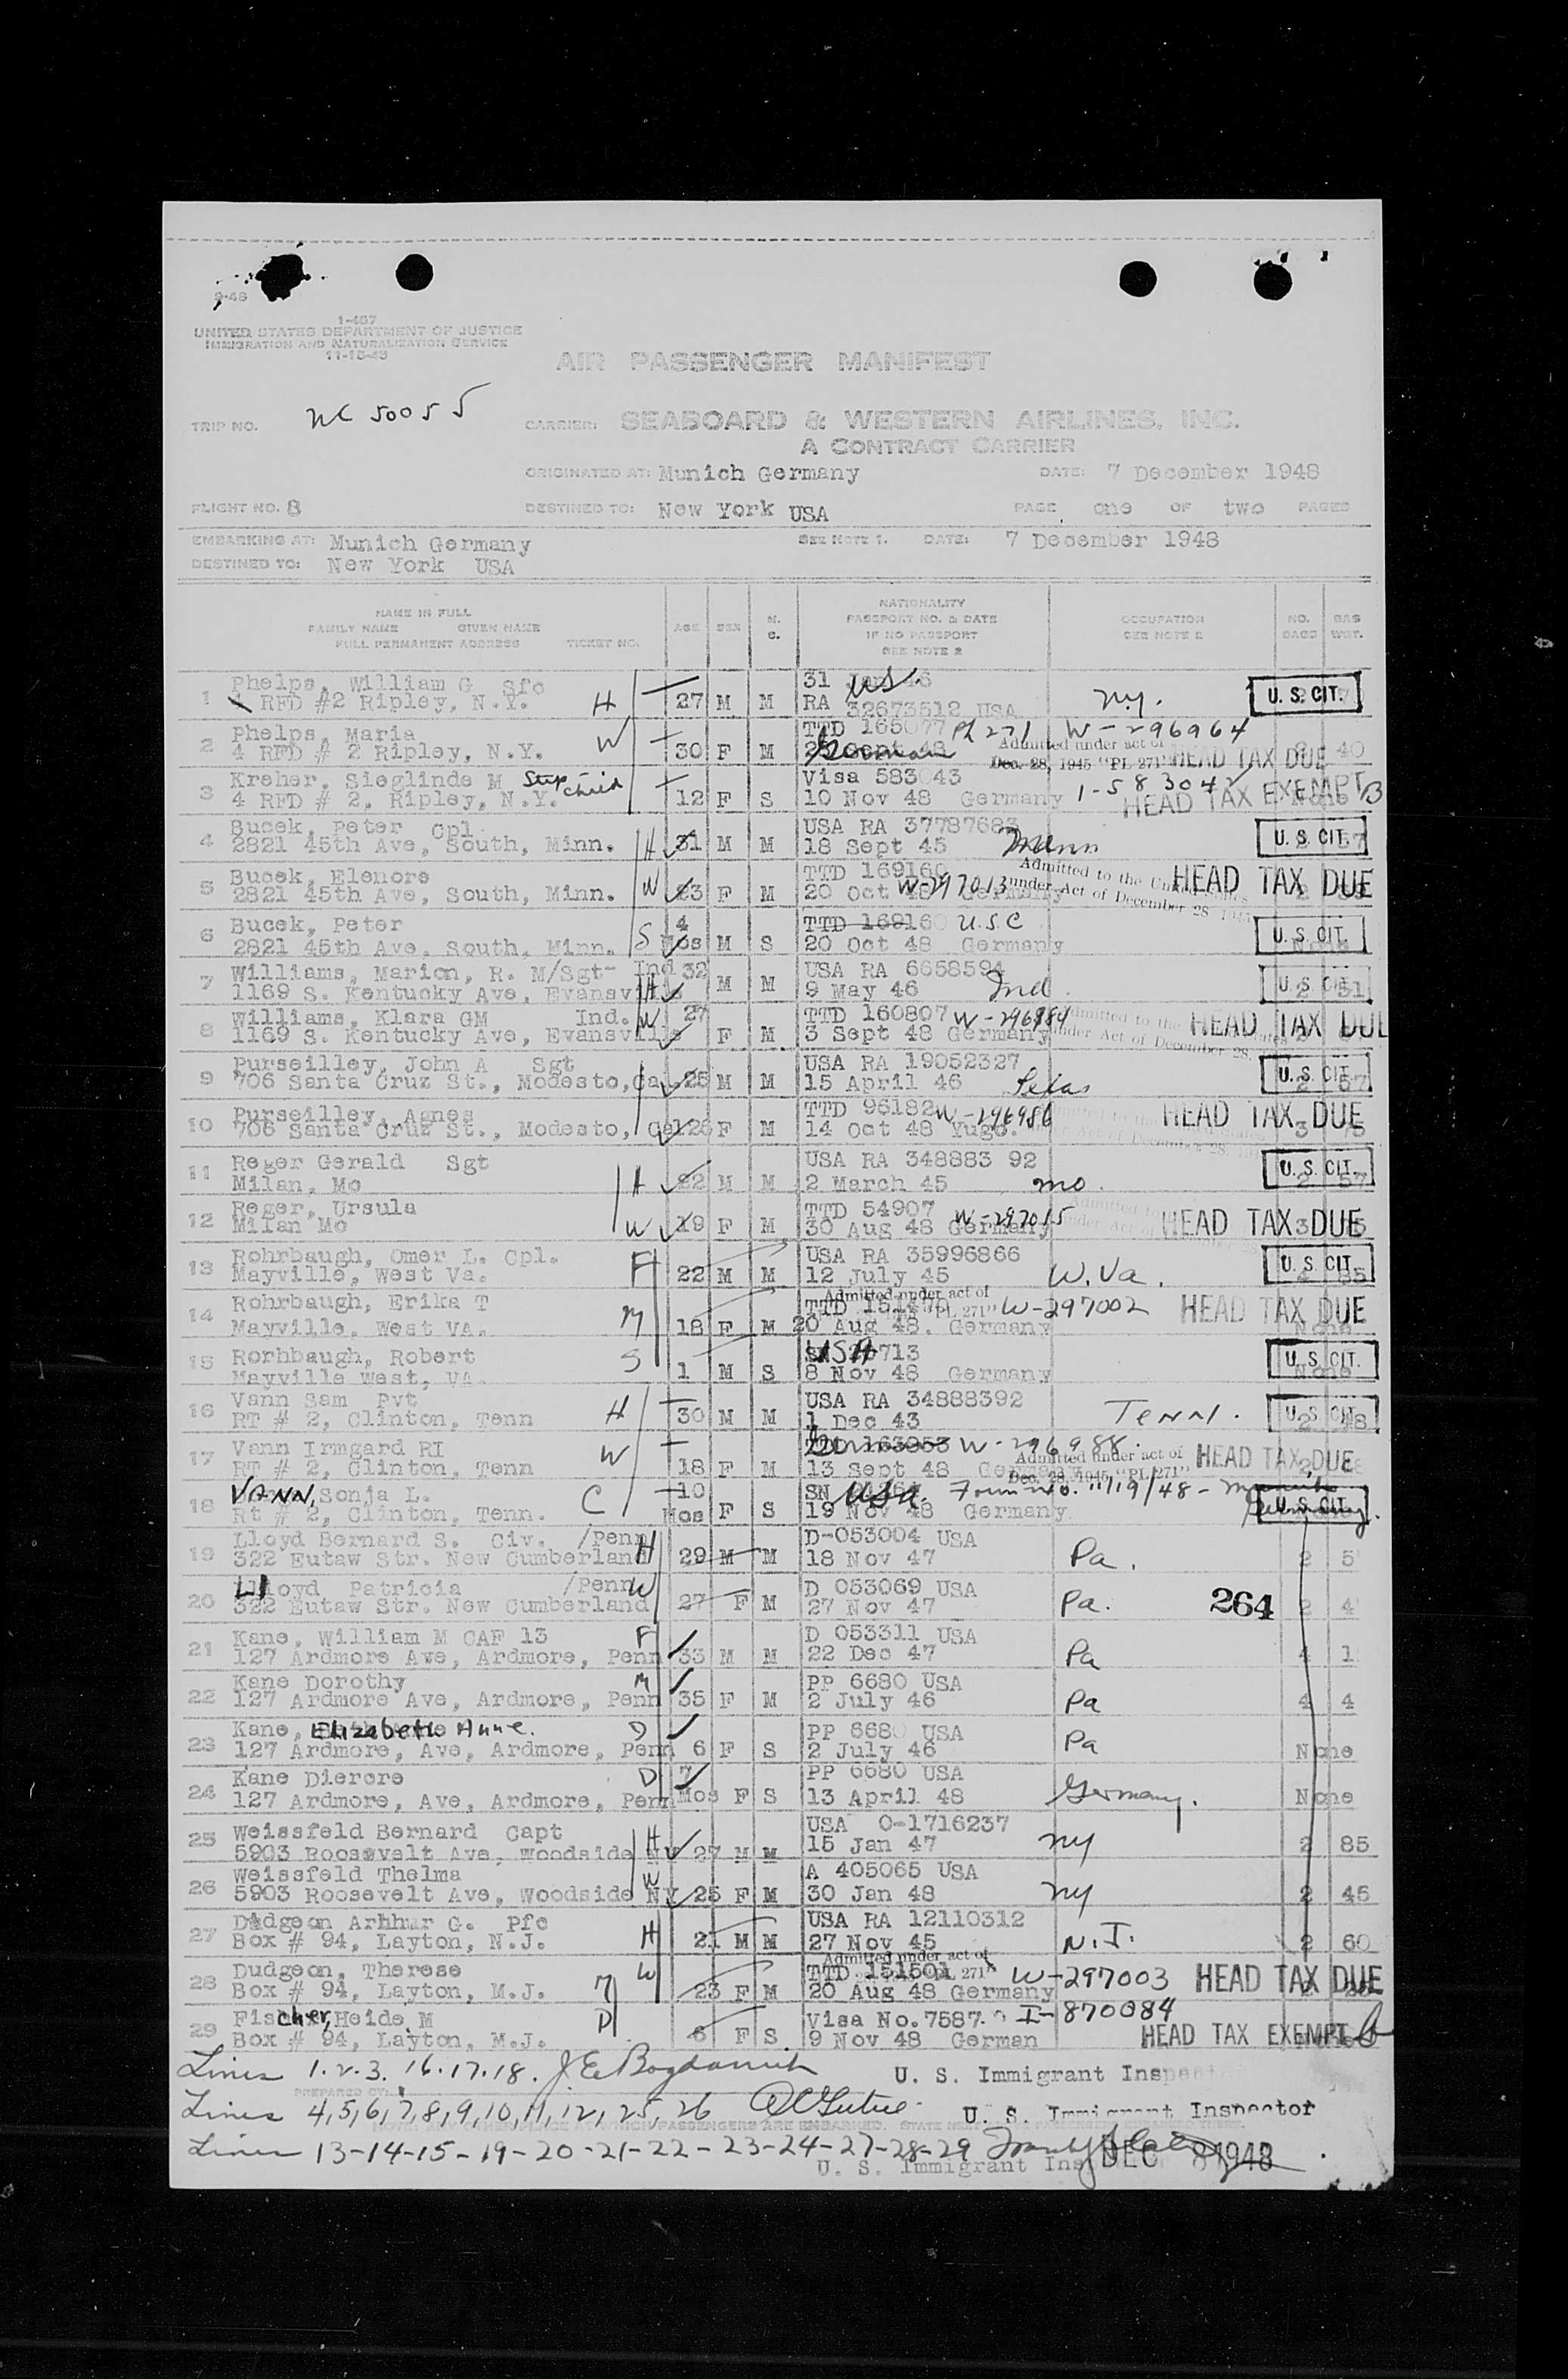 9-48
1-467
UNITED STATES DEPARTMENT OF JUSTICE
IMMIGRATION AND NATURALIZATION SERVICE
11-15-48
AIR PASSENGER MANIFEST
TRIP NO. NC 50055 CARRIER: SEABOARD & WESTERN AIRLINES, INC.
A CONTRACT CARRIER
ORIGINATED AT: Munich Germany DATE: 7 December 1948
FLIGHT NO. 8 DESTINED TO: New York USA PAGE one OF two PAGES
EMBARKING AT: Munich Germany SEE NOTE 1. DATE: 7 December 1948
DESTINED TO: New York USA
NAME IN FULL
FAMILY NAME GIVEN NAME
FULL PERMANENT ADDRESS TICKET NO.
AGE SEX M. S.
NATIONALITY
PASSPORT NO. & DATE
IF NO PASSPORT
SEE NOTE 2
OCCUPATION
SEE NOTE 2
NO. BAGS BAG WGT.
1 Phelps, William G Sfc 31 US
4 RFD #2 Ripley, N.Y. H 27 M M RA 32673512 USA N.Y. U. S. CIT.
2 Phelps, Maria TTD 165077 PL 271 W-296964
4 RFD # 2 Ripley, N.Y. W 30 F M German Admitted under act of Dec. 28, 1945 "PL 271" HEAD TAX DUE 40
3 Kreher, Sieglinde M Step child Visa 583043 1-583042
4 RFD # 2, Ripley, N.Y. 12 F S 10 Nov 48 Germany HEAD TAX EXEMPT B
4 Bucek, Peter Cpl USA RA 37787683
2821 45th Ave, South, Minn. H 31 M M 18 Sept 45 Minn U. S. CIT. 57
5 Bucek, Elenore TTD 169160 Admitted to the United States
2821 45th Ave, South, Minn. W 23 F M 20 Oct W-297013 under Act of December 28 1945 HEAD TAX DUE
6 Bucek, Peter 4 TTD 169160 U.S.C
2821 45th Ave. South, Minn. S Mos M S 20 Oct 48 Germany U. S. CIT. None
7 Williams, Marion, R. M/Sgt- Ind 32 USA RA 6658594
1169 S. Kentucky Ave, Evansville H M M 9 May 46 Ind. U. S. CIT. 51
8 Williams, Klara GM Ind. W 27 TTD 160807 W-296984 Admitted to the
1169 S. Kentucky Ave, Evansville F M 3 Sept 48 Germany under Act of December 28, HEAD TAX DUE
9 Purseilley, John A Sgt USA RA 19052327
706 Santa Cruz St., Modesto, Cal 25 M M 15 April 46 U. S. CIT. 2 57
10 Purseilley, Agnes TTD 96182 W-296986
706 Santa Cruz St., Modesto, Cal 26 F M 14 Oct 48 Yugo. HEAD TAX DUE 3
11 Reger Gerald Sgt USA RA 348883 92
Milan, Mo H 22 M M 2 March 45 Mo. U. S. CIT. 2 57
12 Reger, Ursula TTD 54907 W-297015
Milan Mo W 19 F M 30 Aug 48 Germany HEAD TAX DUE 3
13 Rohrbaugh, Omer L. Cpl. USA RA 35996866
Mayville, West Va. F 22 M M 12 July 45 W. Va. U. S. CIT.
14 Rohrbaugh, Erika T Admitted under act of "PL 271" W-297002
Mayville, West VA. M 18 F M 20 Aug 48. Germany HEAD TAX DUE None
15 Rorhbaugh, Robert USA 713
Mayville West, VA. S 1 M S 8 Nov 48 Germany U. S. CIT. None
16 Vann Sam Pvt USA RA 34888392
RT # 2, Clinton, Tenn H 30 M M 1 Dec 43 TENN. U. S. CIT. 2
17 Vann Irmgard RI 163953 W-296988.
RT # 2, Clinton, Tenn W 18 F M 13 Sept 48 Admitted under act of Dec. 28, 1945 "PL 271" HEAD TAX DUE
18 VANN, Sonja L. 10 SN USA.
Rt # 2, Clinton, Tenn. C Mos F S 19 Nov 48 Germany U. S. CIT. Germany.
19 Lloyd Bernard S. Civ. /Penn D-053004 USA
322 Eutaw Str. New Cumberland H 29 M M 18 Nov 47 Pa. 2 5
20 Lloyd Patricia /Penn D 053069 USA
322 Eutaw Str. New Cumberland W 27 F M 27 Nov 47 Pa. 264 2 4
21 Kane, William M CAF 13 F D 053311 USA
127 Ardmore Ave, Ardmore, Penn 33 M M 22 Dec 47 Pa 4 1
22 Kane Dorothy M PP 6680 USA
127 Ardmore Ave, Ardmore, Penn 35 F M 2 July 46 Pa 4 4
23 Kane, Elizabeth Anne. D PP 6680 USA
127 Ardmore, Ave, Ardmore, Penn 6 F S 2 July 46 Pa None
24 Kane Dierore D 7 PP 6680 USA
127 Ardmore, Ave, Ardmore, Penn Mos F S 13 April 48 Germany. None
25 Weissfeld Bernard Capt USA O-1716237
5903 Roosevelt Ave, Woodside NY H 27 M M 15 Jan 47 NY 2 85
26 Weissfeld Thelma W A 405065 USA
5903 Roosevelt Ave, Woodside NY 25 F M 30 Jan 48 NY 2 45
27 Dudgeon Arhhur G. Pfc USA RA 12110312
Box # 94, Layton, N.J. H 21 M M 27 Nov 45 N.J. 2 60
28 Dudgeon, Therese W Admitted under act of TTD 151501 271"
Box # 94, Layton, M.J. M 23 F M 20 Aug 48 Germany W-297003 HEAD TAX DUE
29 Fischer, Heide M Visa No. 7587. I-870084
Box # 94, Layton, M.J. D 6 F S 9 Nov 48 German HEAD TAX EXEMPT b
Lines 1.2.3. 16.17.18. J. E. Bogdanich U. S. Immigrant Inspector
PREPARED BY:
Lines 4,5,6,7,8,9,10,11,12,25,26 U. S. Immigrant Inspector
Lines 13-14-15-19-20-21-22-23-24-27-28-29
U. S. Immigrant Ins DEC 8 1948